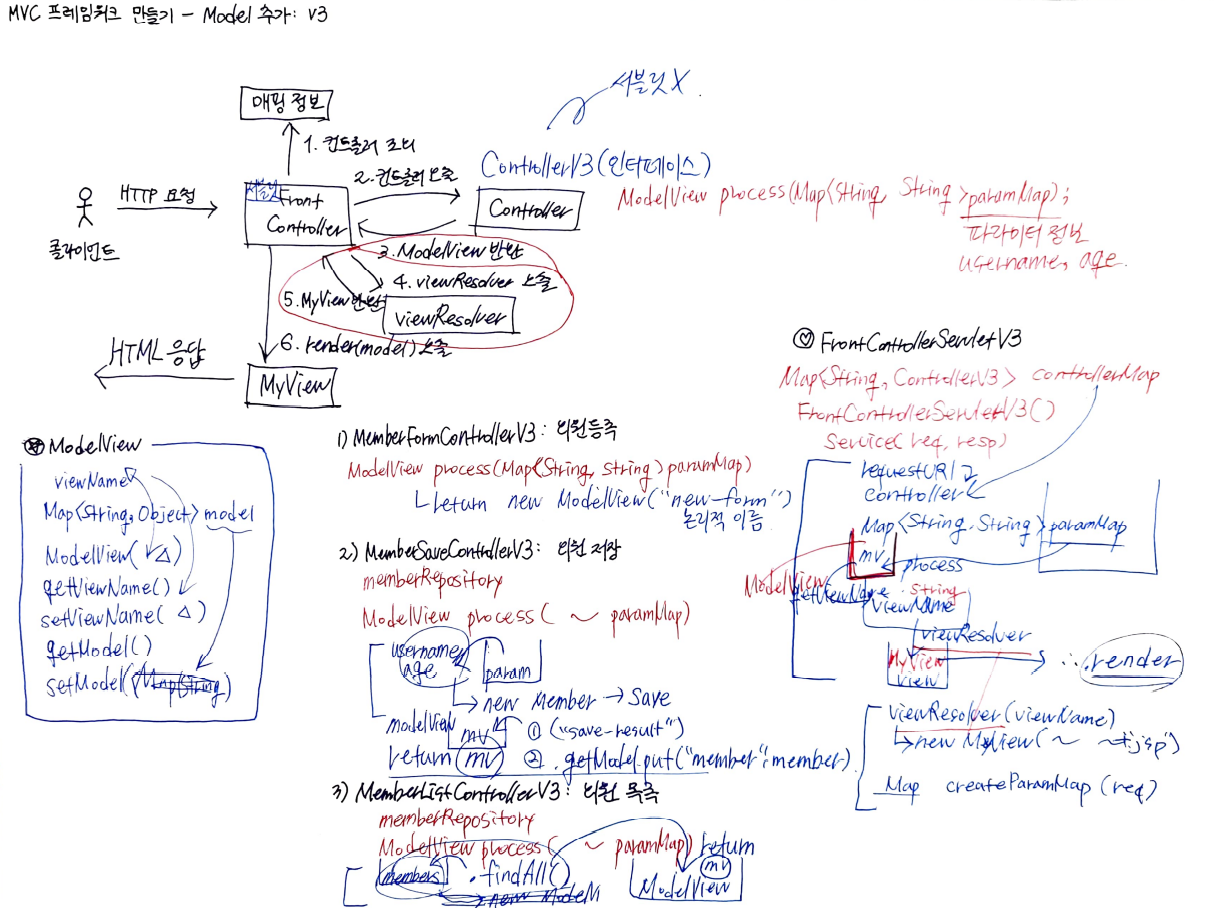 MVC 프레임워크 만들기 - Model 추가: V3
서블릿 X
매핑 정보
1. 컨트롤러 조회
ControllerV3 (인터페이스)
2. 컨트롤러 호출
HTTP 요청
서블릿
Front
Controller
Controller
ModelView process(Map<String, String> paramMap);
파라미터 정보
username, age
클라이언트
3. ModelView 반환
4. viewResolver 호출
5. MyView 반환
viewResolver
6. render(model) 호출
HTML 응답
MyView
ModelView
viewName
Map<String, Object> model
ModelView( △ )
getViewName()
setViewName( △ )
getModel()
setModel(
1) MemberFormControllerV3 : 회원등록
ModelView process(Map<String, String> paramMap)
return new ModelView("new-form")
논리적 이름
2) MemberSaveControllerV3 : 회원 저장
memberRepository
ModelView process( ~ paramMap)
username
age
param
new Member → Save
modelView
mv
① ("save-result")
return mv ② .getModel.put("member", member)
3) MemberListControllerV3 : 회원 목록
memberRepository
ModelView process( ~ paramMap) return
members .findAll()
mv
ModelView
FrontControllerServletV3
Map<String, ControllerV3> controllerMap
FrontControllerServletV3()
Service(req, resp)
requestURI
controller
Map<String, String> paramMap
mv
process
ModelView
getViewName
String
viewName
viewResolver
MyView
view
.render
viewResolver(viewName)
new MyView( ~ ~ .jsp")
Map createParamMap(req)